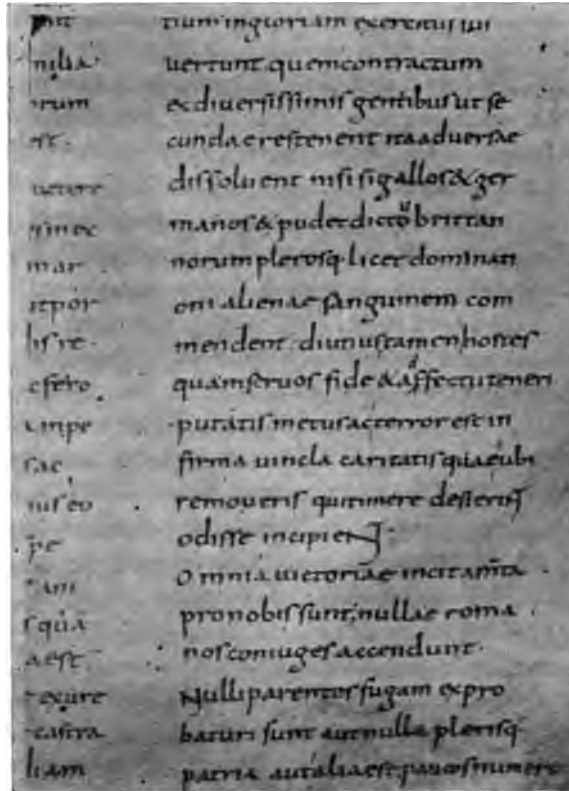 milia
rum
est.
uetere
mar
itpor
lis re
e fero
inpe
sae
ius eo
pe
s quã
aest
castra
liam
tium ingloriam exercitus sui
uertunt. quem contractum
ex diuersissimis gentibus ut se
cundae res tenent ita aduersae
dissoluent nisi si gallos & ger
manos & pudet dictu brittan
norum plerosq. licet dominati
oni alienae sanguinem com
mendent. diutius tamen hostes
quam seruos fide & affectu teneri
putatis metus ac terror est in
firma uincla caritatis quae ubi
remoueris qui timere desierint
odisse incipient.
Omnia uictoriae incitamta
pro nobis sunt; nullae roma
nos coniuges accendunt.
Nulli parentes fugam expro
baturi sunt aut nulla plerisq
patria aut alia est. paucos numero